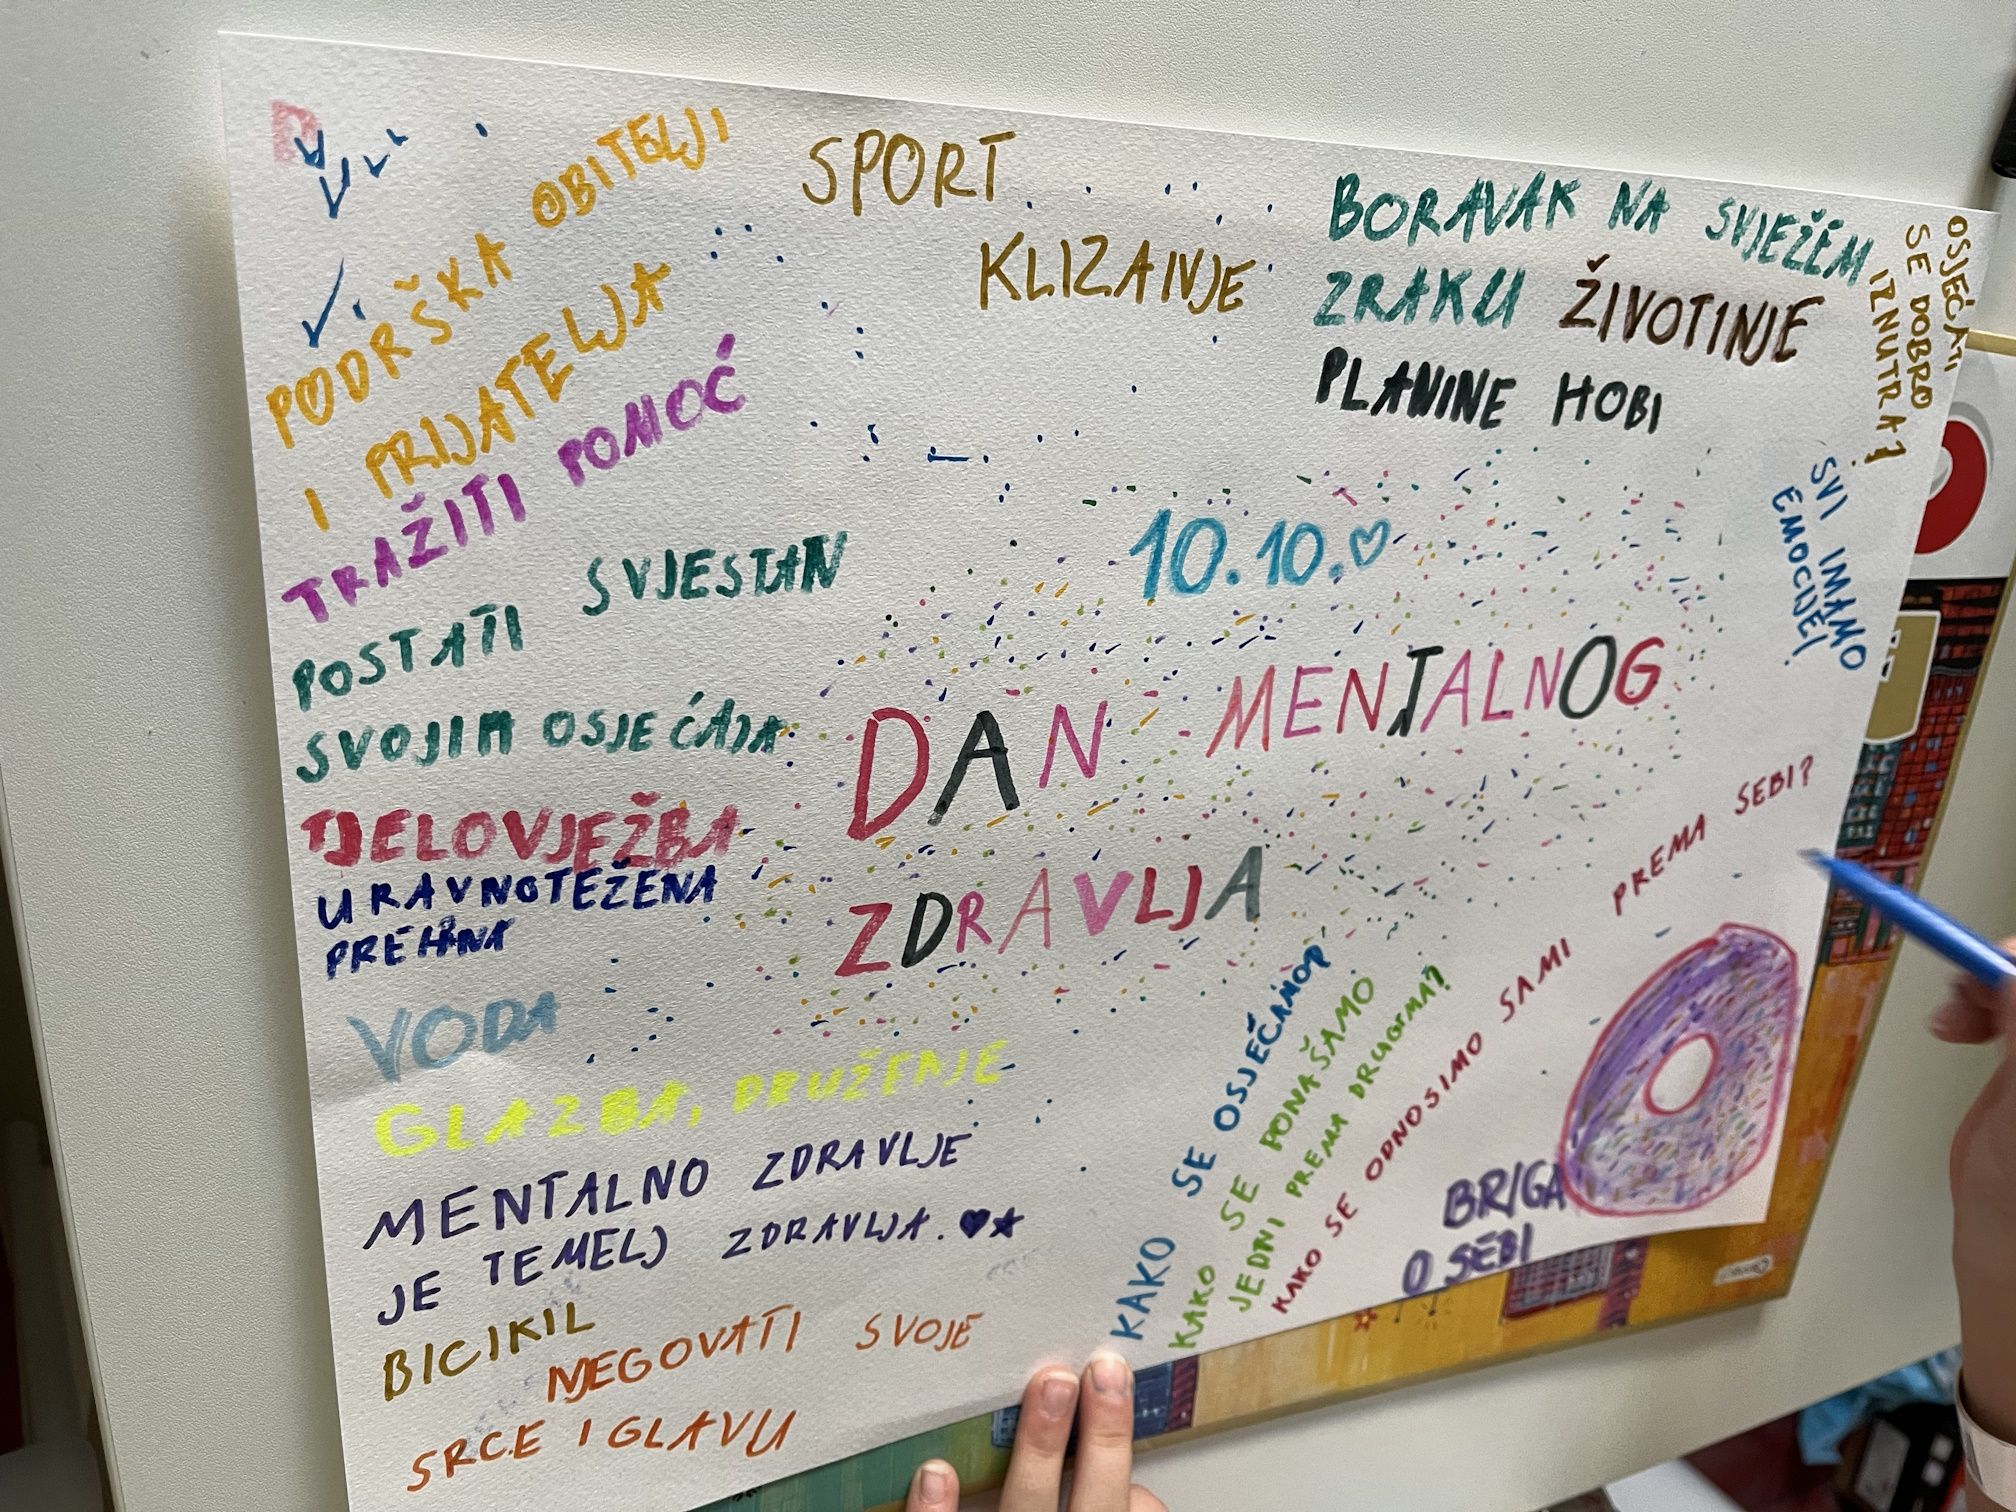 PODRŠKA OBITELJI
I PRIJATELJA
TRAŽITI POMOĆ
POSTATI SVJESTAN
SVOJIM OSJEĆAJA
TJELOVJEŽBA
URAVNOTEŽENA
PREHRANA
VODA
GLAZBA, DRUŽENJE
MENTALNO ZDRAVLJE
JE TEMELJ ZDRAVLJA. ♥★
BICIKIL
NJEGOVATI SVOJE
SRCE I GLAVU
SPORT
KLIZANJE
BORAVAK NA SVJEŽEM
ZRAKU ŽIVOTINJE
PLANINE HOBI
OSJEĆATI
SE DOBRO
IZNUTRA!
SVI IMAMO
EMOCIJE!
10.10.♡
DAN MENTALNOG
ZDRAVLJA
KAKO SE OSJEĆAMO?
KAKO SE PONAŠAMO
JEDNI PREMA DRUGIMA?
KAKO SE ODNOSIMO SAMI PREMA SEBI?
BRIGA
O SEBI